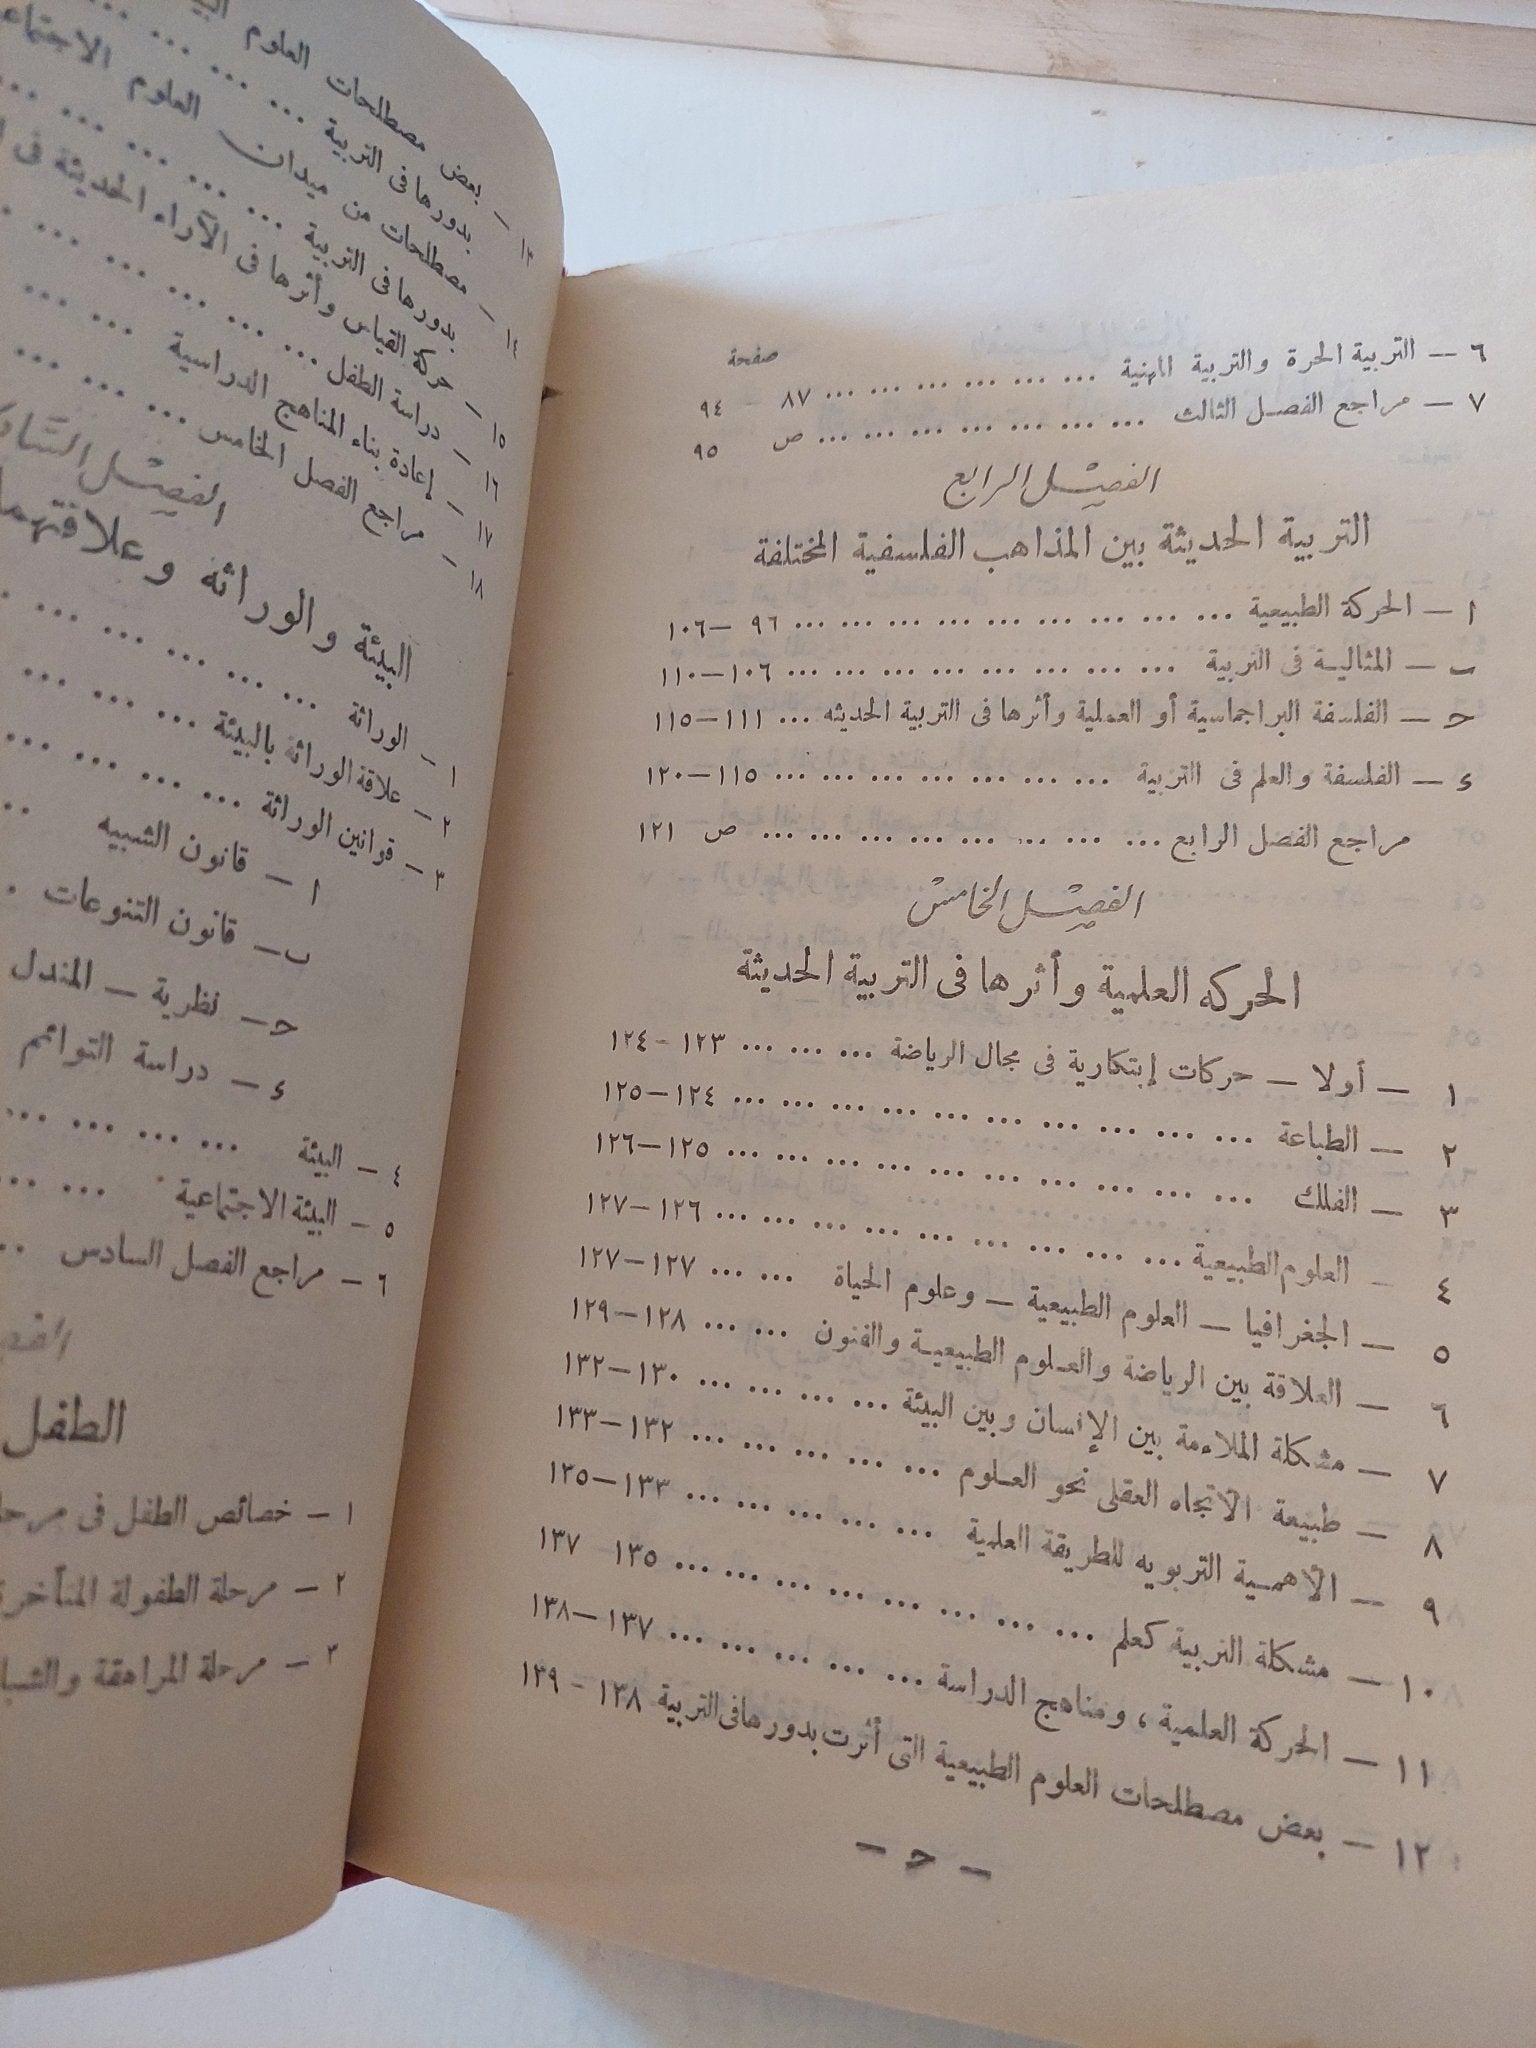 صفحة
٦ — التربية الحرة والتربية المهنية ... ... ... ... ... ... ٨٧ - ٩٤
٧ — مراجع الفصل الثالث ... ... ... ... ... ... ... ص ٩٥
الفصل الرابع
التربية الحديثة بين المذاهب الفلسفية المختلفة
ا — الحركة الطبيعية ... ... ... ... ... ... ... ... ... ... ٩٦ —١٠٦
ب — المثالية فى التربية ... ... ... ... ... ... ... ... ... ١٠٦—١١٠
ح — الفلسفة البراجماسية أو العملية وأثرها فى التربية الحديثه ... ١١١—١١٥
ء — الفلسفة والعلم فى التربية ... ... ... ... ... ... ... ... ١١٥—١٢٠
مراجع الفصل الرابع ... ... ... ... ... ... ... ... ... ص ١٢١
الفصل الخامس
الحركه العلمية وأثرها فى التربية الحديثة
١ — أولا — حركات إبتكارية فى مجال الرياضة ... ... ... ١٢٣ - ١٢٤
٢ — الطباعة ... ... ... ... ... ... ... ... ... ... ١٢٤—١٢٥
٣ — الفلك ... ... ... ... ... ... ... ... ... ... ١٢٥—١٢٦
٤ — العلوم الطبيعية ... ... ... ... ... ... ... ... ... ... ١٢٦—١٢٧
٥ — الجغرافيا — العلوم الطبيعية — وعلوم الحياة ... ... ... ١٢٧—١٢٧
٦ — العلاقة بين الرياضة والعلوم الطبيعية والفنون ... ... ... ١٢٨—١٢٩
٧ — مشكلة الملاءمة بين الإنسان وبين البيئة ... ... ... ... ... ١٣٠—١٣٢
٨ — طبيعة الاتجاه العقلى نحو العلوم ... ... ... ... ... ... ١٣٢—١٣٣
٩ — الأهمية التربويه للطريقة العلمية ... ... ... ... ... ... ١٣٣—١٣٥
١٠ — مشكلة التربية كعلم ... ... ... ... ... ... ... ... ... ١٣٥ ١٣٧
١١ — الحركة العلمية ، ومناهج الدراسة ... ... ... ... ... ... ١٣٧—١٣٨
١٢ — بعض مصطلحات العلوم الطبيعية التى أثرت بدورها فى التربية ١٣٨ - ١٣٩
— ح —
١٣ — بعض مصطلحات العلوم
بدورها فى التربية ... ... ...
١٤ — مصطلحات من ميدان العلوم
بدورها فى التربية ... ... ... ...
١٥ — حركة القياس وأثرها فى الآراء الحديثة فى
١٦ — دراسة الطفل ... ... ... ... ... ...
١٧ — إعادة بناء المناهج الدراسية ... ...
١٨ — مراجع الفصل الخامس ... ... ... ...
الفصل
البيئة والوراثة وعلاقتهما
١ — الوراثة ... ... ... ... ... ...
٢ — علاقة الوراثة بالبيئة ... ... ... ...
٣ — قوانين الوراثة ... ... ... ... ...
ا — قانون الشبيه ...
ب — قانون التنوعات
ح — نظرية — المندل
ء — دراسة التوائم
٤ — البيئة ... ... ... ...
٥ — البيئة الاجتماعية ... ... ...
٦ — مراجع الفصل السادس ...
الطفل
١ — خصائص الطفل فى
٢ — مرحلة الطفولة المتأخرة
٣ — مرحلة المراهقة